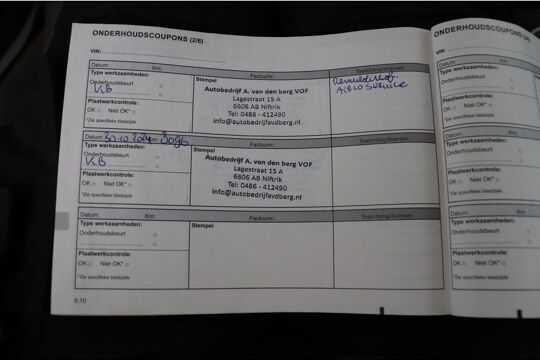 ONDERHOUDSCOUPONS (2/6)
VIN:
Datum: Km: Factuurnr.: Toelichting/diversen
Type werkzaamheden:
Onderhoudsbeurt
KB
Plaatwerkcontrole:
OK Niet OK*
*Zie specifieke bladzijde
Stempel
Autobedrijf A. van den berg VOF
Lagestraat 15 A
6606 AB Niftrik
Tel: 0486 - 412490
info@autobedrijfavdberg.nl
Airco Service
Datum: 30-10-2024 Km: Factuurnr.: Toelichting/diversen
Type werkzaamheden:
Onderhoudsbeurt
KB
Plaatwerkcontrole:
OK Niet OK*
*Zie specifieke bladzijde
Stempel
Autobedrijf A. van den berg VOF
Lagestraat 15 A
6606 AB Niftrik
Tel: 0486 - 412490
info@autobedrijfavdberg.nl
Datum: Km: Factuurnr.: Toelichting/diversen
Type werkzaamheden:
Onderhoudsbeurt
Plaatwerkcontrole:
OK Niet OK*
*Zie specifieke bladzijde
Stempel
6.10
ONDERHOUDSCOUPONS
VIN:
Datum:
Type werkzaamheden:
Onderhoudsbeurt
Plaatwerkcontrole:
OK Niet OK*
*Zie specifieke bladzijde
Datum:
Type werkzaamheden:
Onderhoudsbeurt
Plaatwerkcontrole:
OK Niet OK*
*Zie specifieke bladzijde
Datum:
Type werkzaamheden:
Onderhoudsbeurt
Plaatwerkcontrole:
OK Niet OK*
*Zie specifieke bladzijde